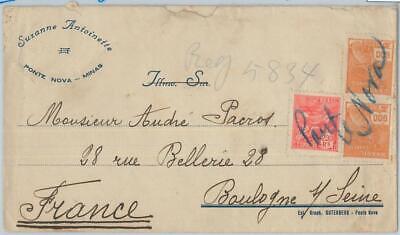 Suzanne Antoinette
PONTE NOVA - MINAS
Reg 5834
Illmo. Snr.
Monsieur André Pacros
28 rue Bellerie 28
Boulogne s/ Seine
France
Pont Nova
Est. Graph. GUTENBERG - Ponte Nova